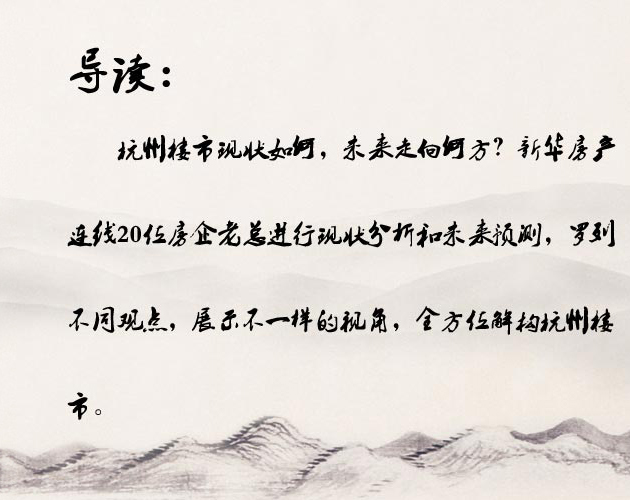 导读：
杭州楼市现状如何，未来走向何方？新华房产
连线20位房企老总进行现状分析和未来预测，罗列
不同观点，展示不一样的视角，全方位解构杭州楼
市。